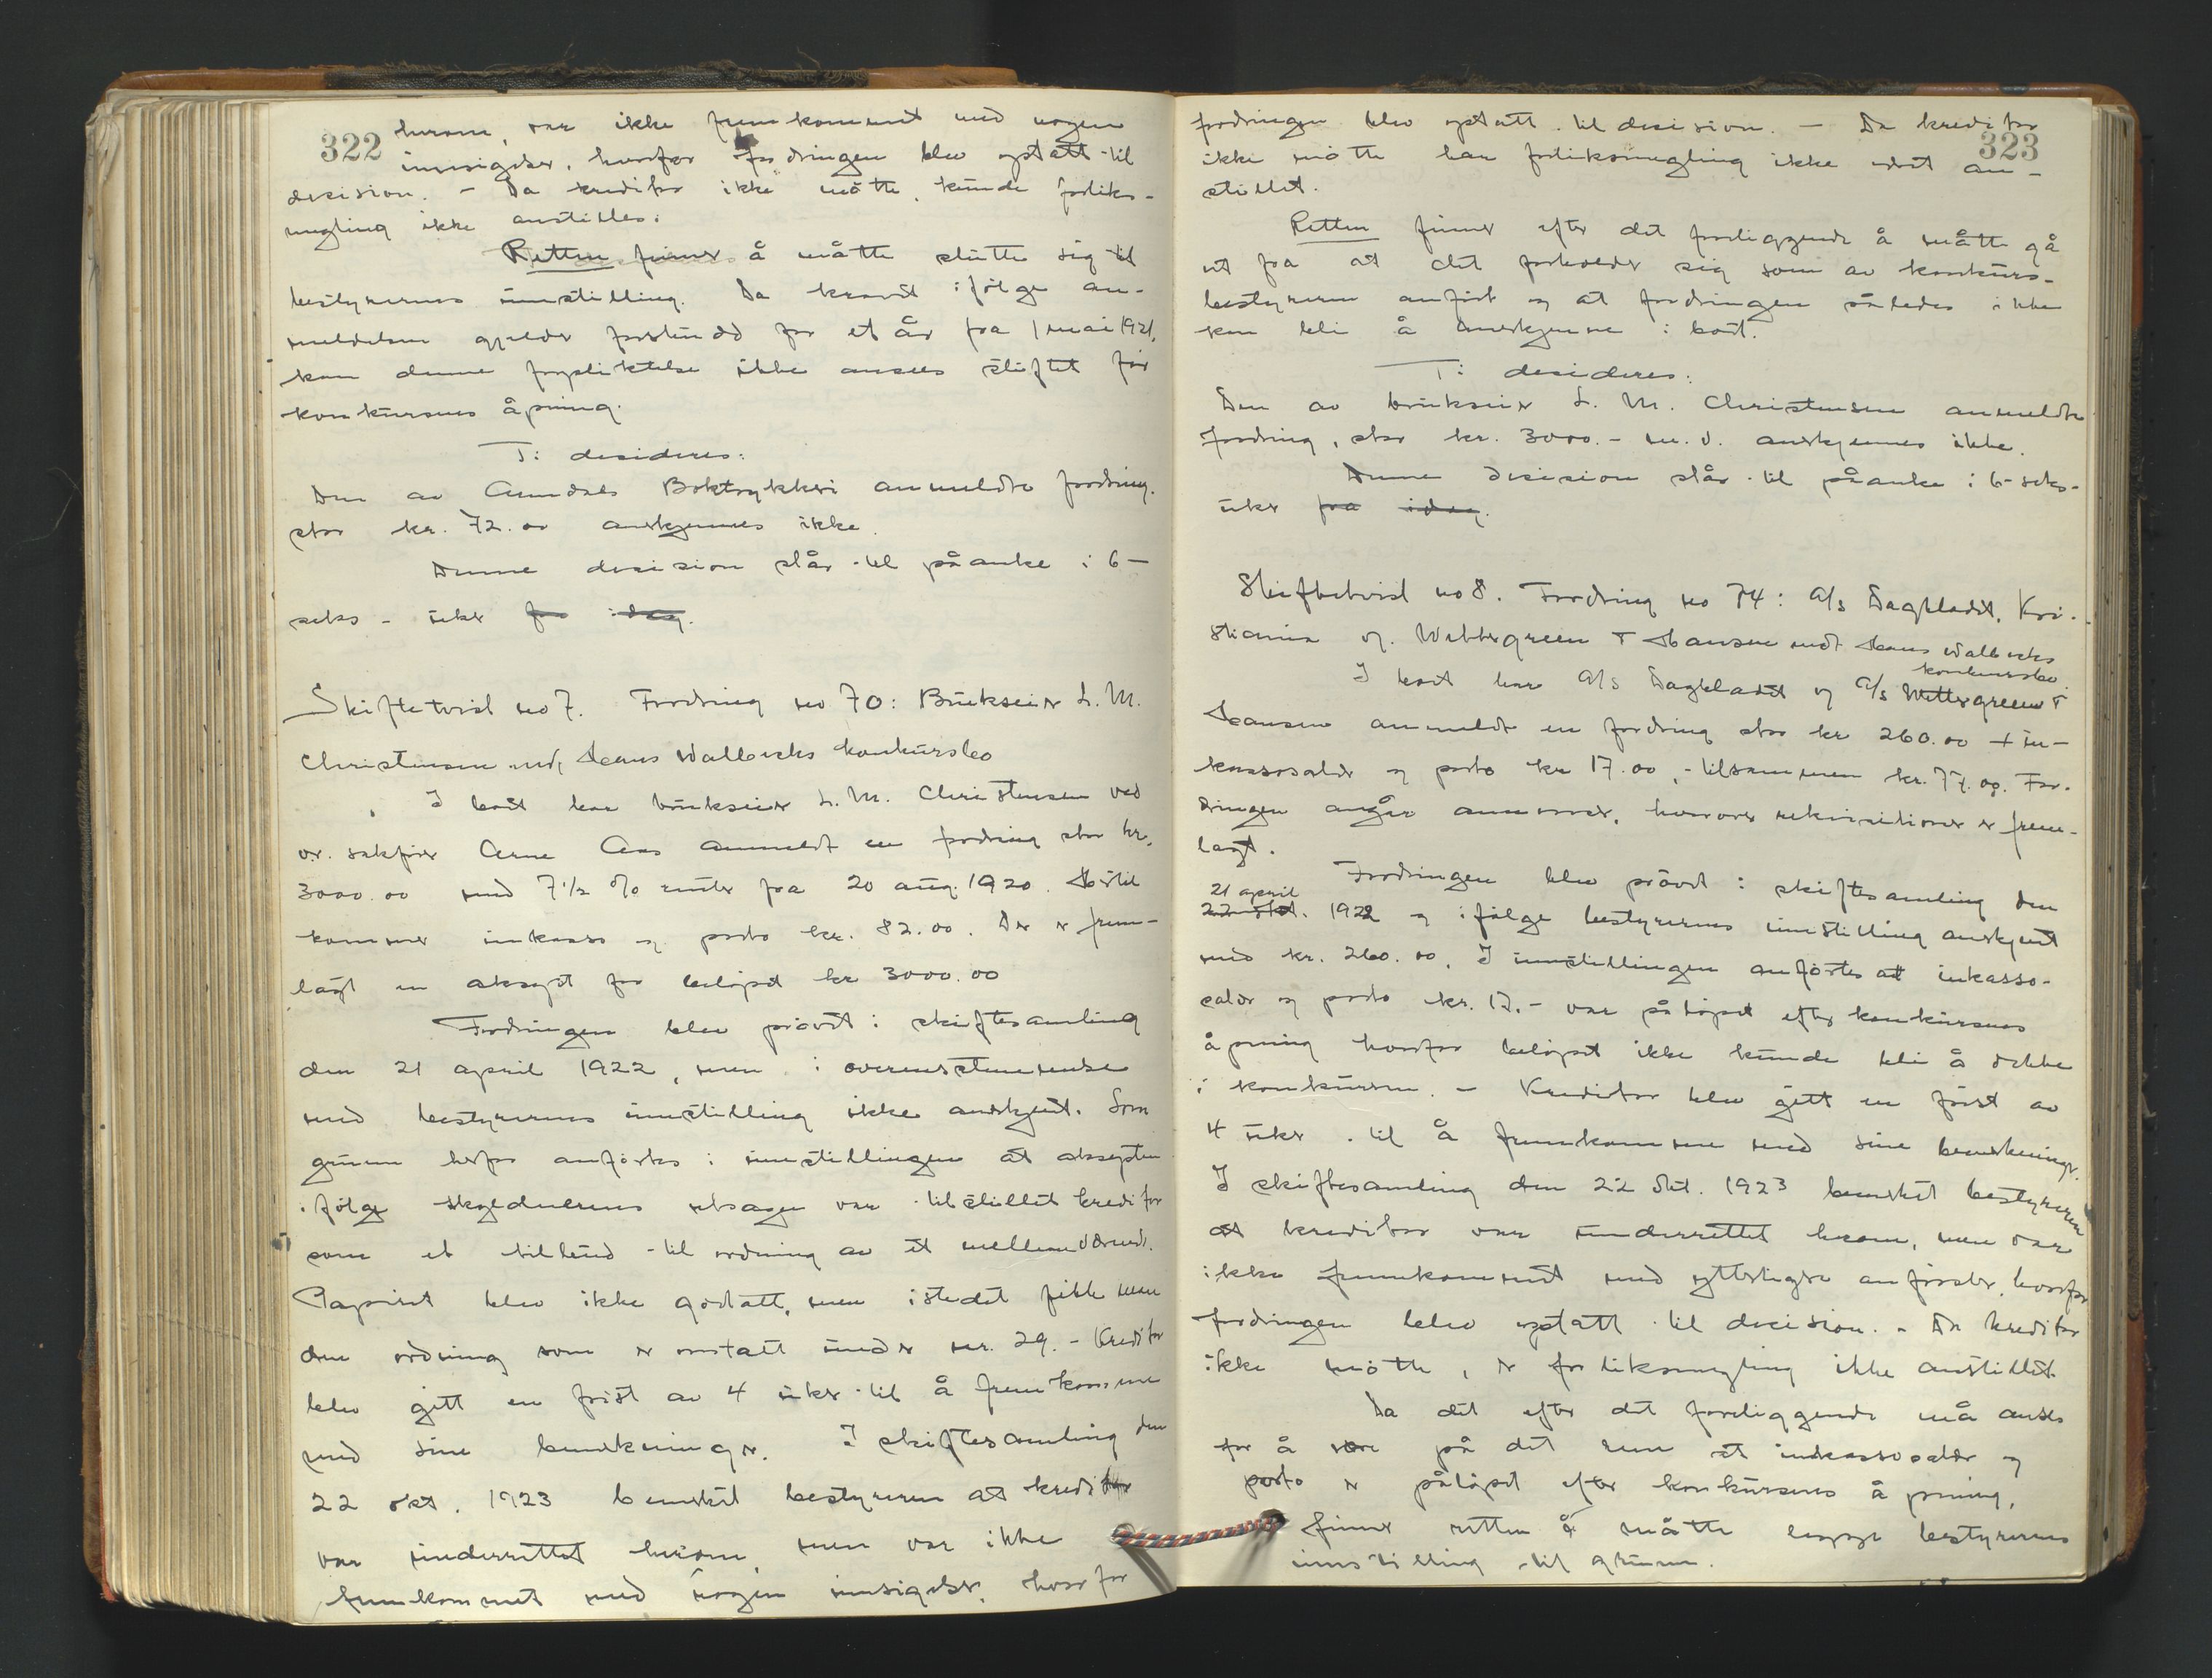 322
herom, var ikke fremkommet med nogen
innsigelser, hvorfor fordringen blev optatt til
decision. - Da kreditor ikke møtte, kunde forliks-
megling ikke anstilles.
Retten finner å måtte slutte sig til
bestyrerens innstilling. Da kravet ifølge an-
meldelsen gjelder forskudd for et år fra 1 mai 1921,
kan denne forpliktelse ikke ansees stiftet før
konkursens åpning.
Ti desideres:
Den av Arendals Boktrykkeri anmeldte fordring,
stor kr. 72.00 anerkjennes ikke.
Denne decision står til påanke i 6-
seks - uker fra idag.
Skiftetvist no 7. Fordring no 70: Brukseier L. M.
Christensen mot Hans Walleviks konkursbo
I boet har brukseier L. M. Christensen ved
o.r. sakfører Arne Aas anmeldt en fordring stor kr.
3000.00 med 7 1/2 % renter fra 20 aug. 1920. Hertil
kommer inkasso og porto kr. 82.00. Der er frem-
lagt en aksept for beløpet kr 3000.00
Fordringen blev prøvet i skiftesamling
den 21 april 1922, men i overensstemmelse
med bestyrerens innstilling ikke anerkjent. Som
grunn herfor anførtes i innstillingen at aksepten
ifølge skyldnerens utsagn var tilstillet kreditor
som et tilbud til ordning av et mellemværende.
Papiret blev ikke godtatt, men istedet fikk man
den ordning som er omtalt under nr. 29. - Kreditor
blev gitt en frist av 4 uker til å fremkomme
med sine bemerkninger. I skiftesamling den
22 okt. 1923 bemerket bestyreren at kreditor
var underrettet herom, men var ikke
fremkommet med nogen innsigelser, hvorfor
323
fordringen blev optatt til decision. - Da kreditor
ikke møtte har forliksmegling ikke vært an-
stillet.
Retten finner efter det foreliggende å måtte gå
ut fra at det forholder sig som av konkurs-
bestyreren anført og at fordringen således ikke
kan bli å anerkjenne i boet.
Ti desideres:
Den av brukseier L. M. Christensen anmeldte
fordring, stor kr. 3000.- m.v. anerkjennes ikke.
Denne decision står til påanke i 6-seks-
uker fra idag.
Skiftetvist no 8. Fordring no 74: A/s Dagbladet, Kri-
stiania og Wettergreen & Hansen mot Hans Walleviks
konkursbo.
I boet har A/s Dagbladet og A/s Wettergreen &
Hansen anmeldt en fordring stor kr 260.00 + in-
kassosalær og porto kr 17.00, - tilsammen kr. 77.00. For-
dringen angår annonser, hvorover rekvisitioner er frem-
lagt.
Fordringen blev prøvet i skiftesamling den
21 april
22 okt. 1922 og ifølge bestyrerens innstilling anerkjent
med kr. 260.00. I innstillingen anførtes at inkasso-
salær og porto kr. 17.- var påløpet efter konkursens
åpning hvorfor beløpet ikke kunde bli å dekke
i konkursen. - Kreditor blev gitt en frist av
4 uker til å fremkomme med sine bemerkninger.
I skiftesamling den 22 okt. 1923 bemerket bestyreren
at kreditor var underrettet herom, men var
ikke fremkommet med ytterligere anførsler, hvorfor
fordringen blev optatt til decision. - Da kreditor
ikke møtte, er forliksmegling ikke anstillet.
Da det efter det foreliggende må anses
for å være på det rene at inkassosalær og
porto er påløpet efter konkursens åpning,
finner retten å måtte legge bestyrerens
innstilling til grunn.